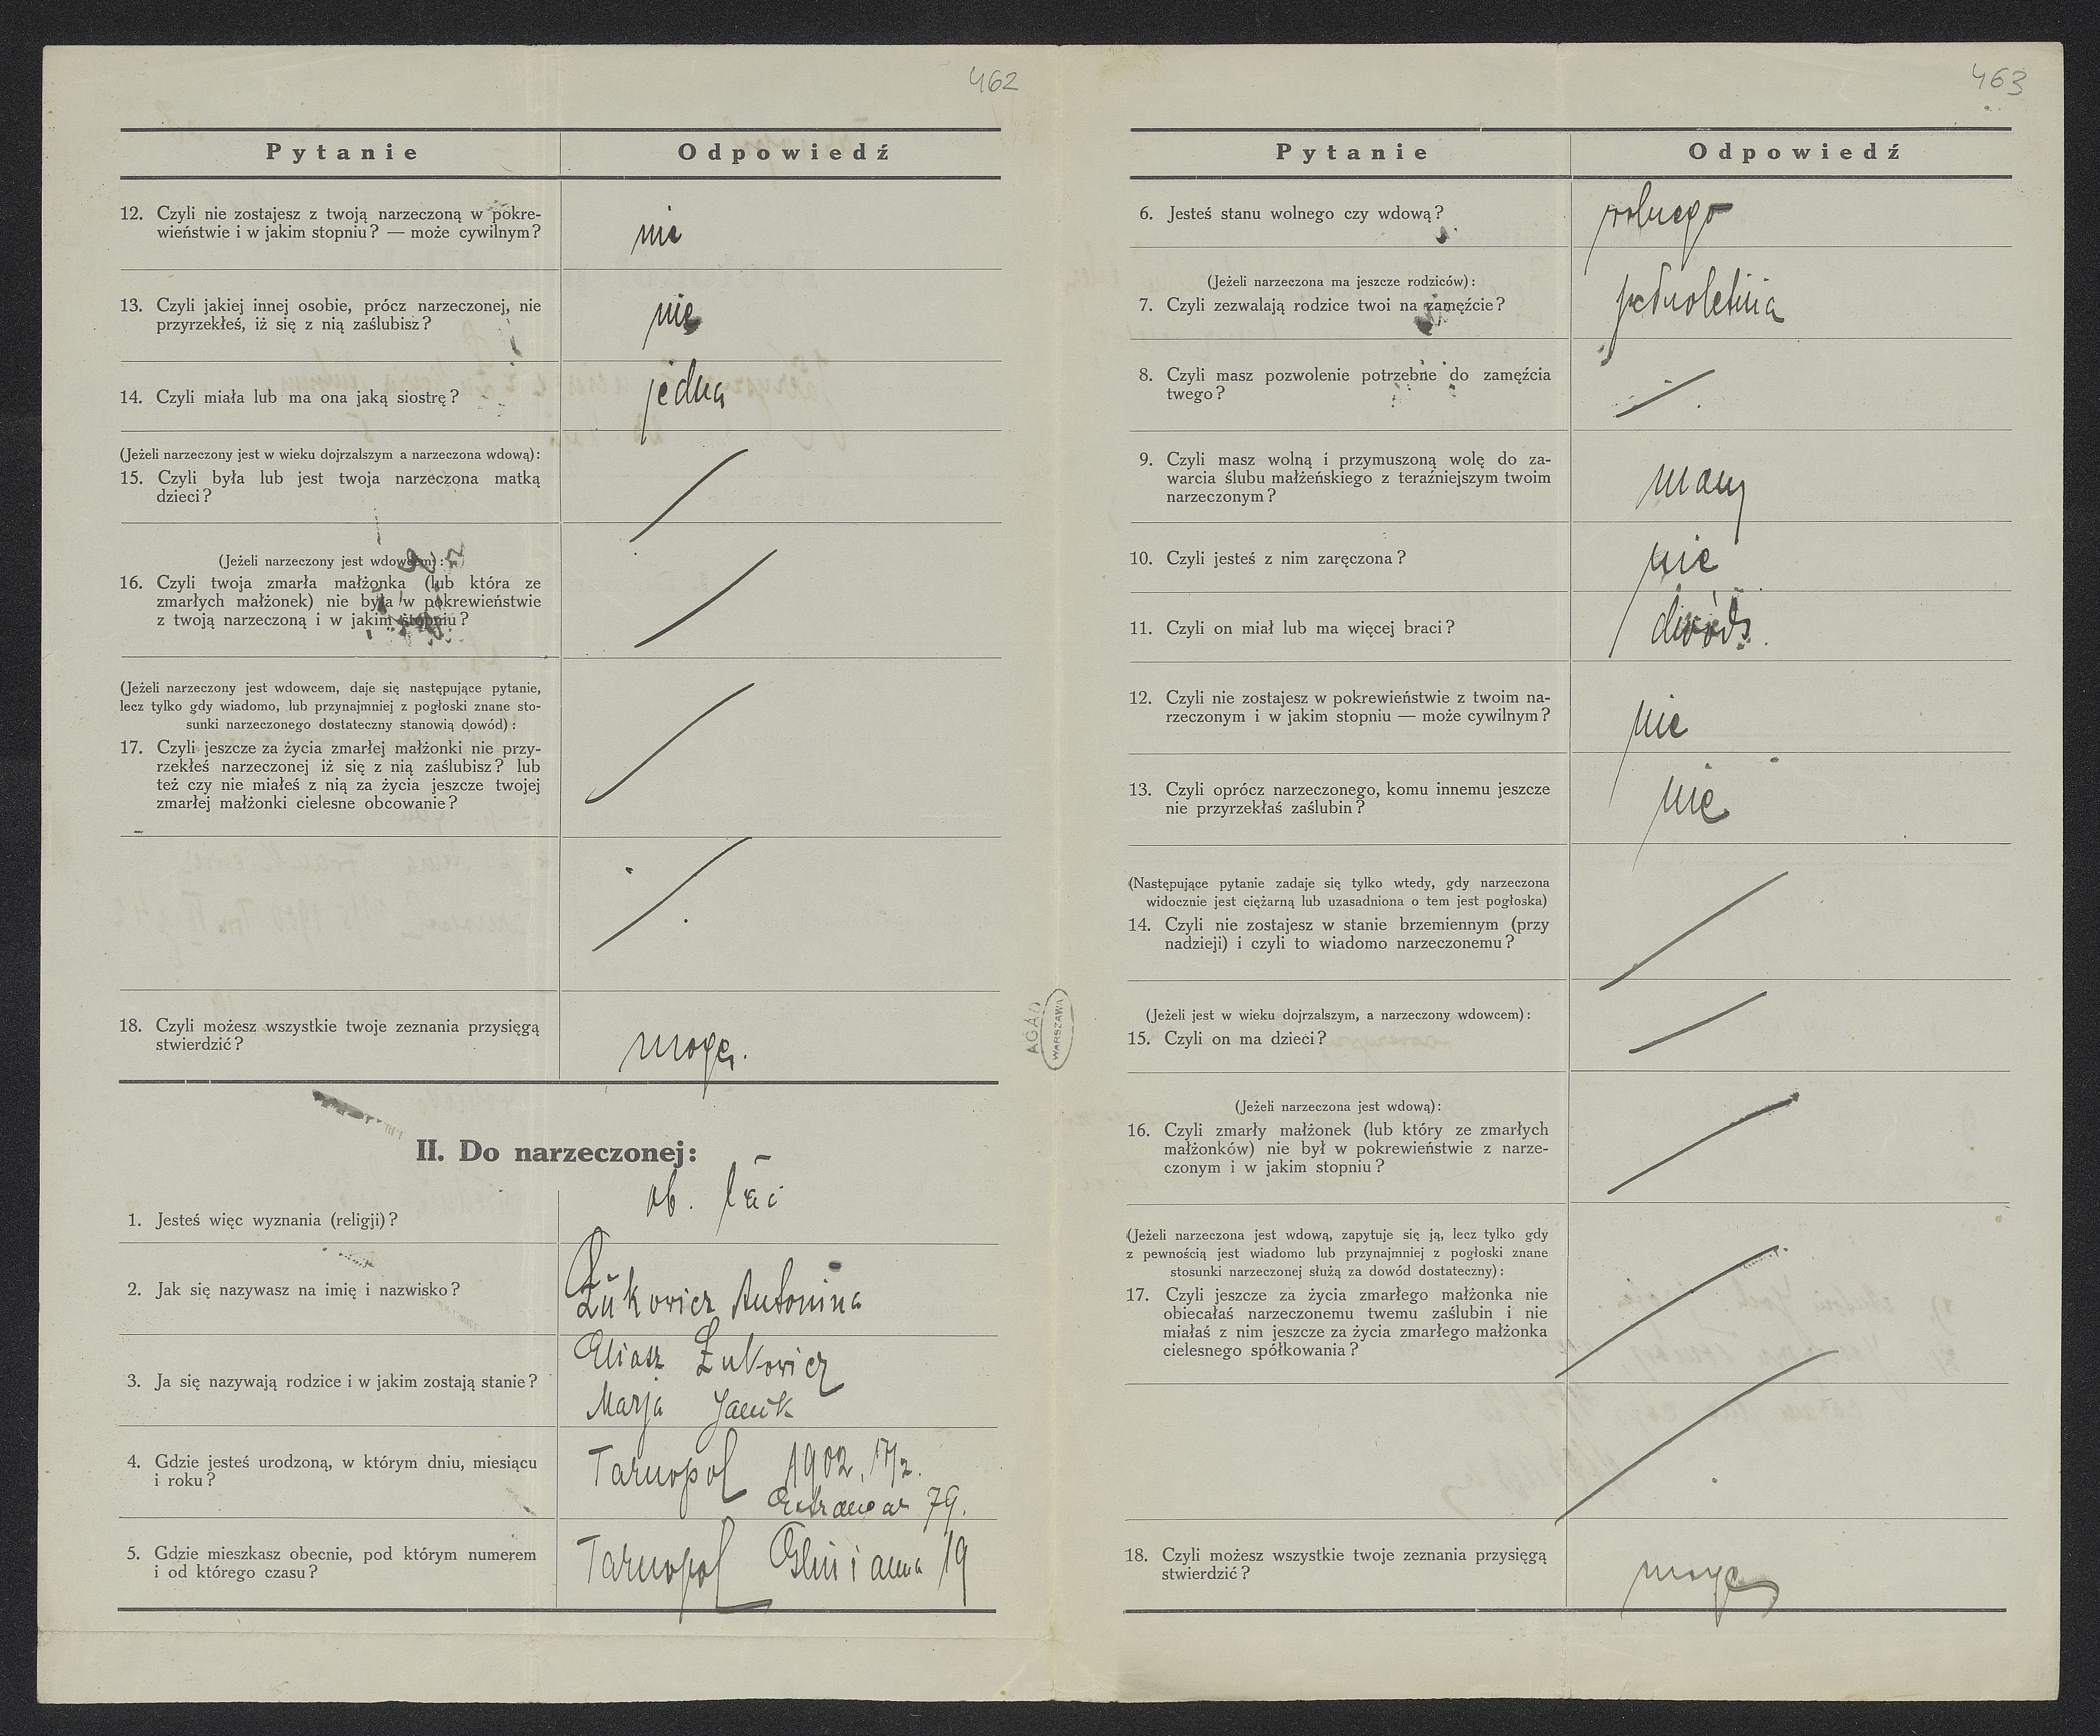 462
Pytanie
Odpowiedź
12. Czyli nie zostajesz z twoją narzeczoną w pokre-
wieństwie i w jakim stopniu? — może cywilnym?
nie
13. Czyli jakiej innej osobie, prócz narzeczonej, nie
przyrzekłeś, iż się z nią zaślubisz?
nie
14. Czyli miała lub ma ona jaką siostrę?
jedna
(Jeżeli narzeczony jest w wieku dojrzalszym a narzeczona wdową):
15. Czyli była lub jest twoja narzeczona matką
dzieci?
(Jeżeli narzeczony jest wdowcem):
16. Czyli twoja zmarła małżonka (lub która ze
zmarłych małżonek) nie była w pokrewieństwie
z twoją narzeczoną i w jakim stopniu?
(Jeżeli narzeczony jest wdowcem, daje się następujące pytanie,
lecz tylko gdy wiadomo, lub przynajmniej z pogłoski znane sto-
sunki narzeczonego dostateczny stanowią dowód):
17. Czyli jeszcze za życia zmarłej małżonki nie przy-
rzekłeś narzeczonej iż się z nią zaślubisz? lub
też czy nie miałeś z nią za życia jeszcze twojej
zmarłej małżonki cielesne obcowanie?
18. Czyli możesz wszystkie twoje zeznania przysięgą
stwierdzić?
mogę.
II. Do narzeczonej:
1. Jesteś więc wyznania (religji)?
ob. łać
2. Jak się nazywasz na imię i nazwisko?
Żukowicz Antonina
3. Ja się nazywają rodzice i w jakim zostają stanie?
Eliasz Żukowicz
Marja
4. Gdzie jesteś urodzoną, w którym dniu, miesiącu
i roku?
Tarnopol 1902, 17/2.
79.
5. Gdzie mieszkasz obecnie, pod którym numerem
i od którego czasu?
Tarnopol Gliniana 19
AGAD
WARSZAWA
463
Pytanie
Odpowiedź
6. Jesteś stanu wolnego czy wdową?
wolnego
(Jeżeli narzeczona ma jeszcze rodziców):
7. Czyli zezwalają rodzice twoi na zamęźcie?
pełnoletnia
8. Czyli masz pozwolenie potrzebne do zamęźcia
twego?
9. Czyli masz wolną i przymuszoną wolę do za-
warcia ślubu małżeńskiego z teraźniejszym twoim
narzeczonym?
mam
10. Czyli jesteś z nim zaręczona?
nie
11. Czyli on miał lub ma więcej braci?
12. Czyli nie zostajesz w pokrewieństwie z twoim na-
rzeczonym i w jakim stopniu — może cywilnym?
nie
13. Czyli oprócz narzeczonego, komu innemu jeszcze
nie przyrzekłaś zaślubin?
nie
(Następujące pytanie zadaje się tylko wtedy, gdy narzeczona
widocznie jest ciężarną lub uzasadniona o tem jest pogłoska)
14. Czyli nie zostajesz w stanie brzemiennym (przy
nadzieji) i czyli to wiadomo narzeczonemu?
(Jeżeli jest w wieku dojrzalszym, a narzeczony wdowcem):
15. Czyli on ma dzieci?
(Jeżeli narzeczona jest wdową):
16. Czyli zmarły małżonek (lub który ze zmarłych
małżonków) nie był w pokrewieństwie z narze-
czonym i w jakim stopniu?
(Jeżeli narzeczona jest wdową, zapytuje się ją, lecz tylko gdy
z pewnością jest wiadomo lub przynajmniej z pogłoski znane
stosunki narzeczonej służą za dowód dostateczny):
17. Czyli jeszcze za życia zmarłego małżonka nie
obiecałaś narzeczonemu twemu zaślubin i nie
miałaś z nim jeszcze za życia zmarłego małżonka
cielesnego spółkowania?
18. Czyli możesz wszystkie twoje zeznania przysięgą
stwierdzić?
mogę